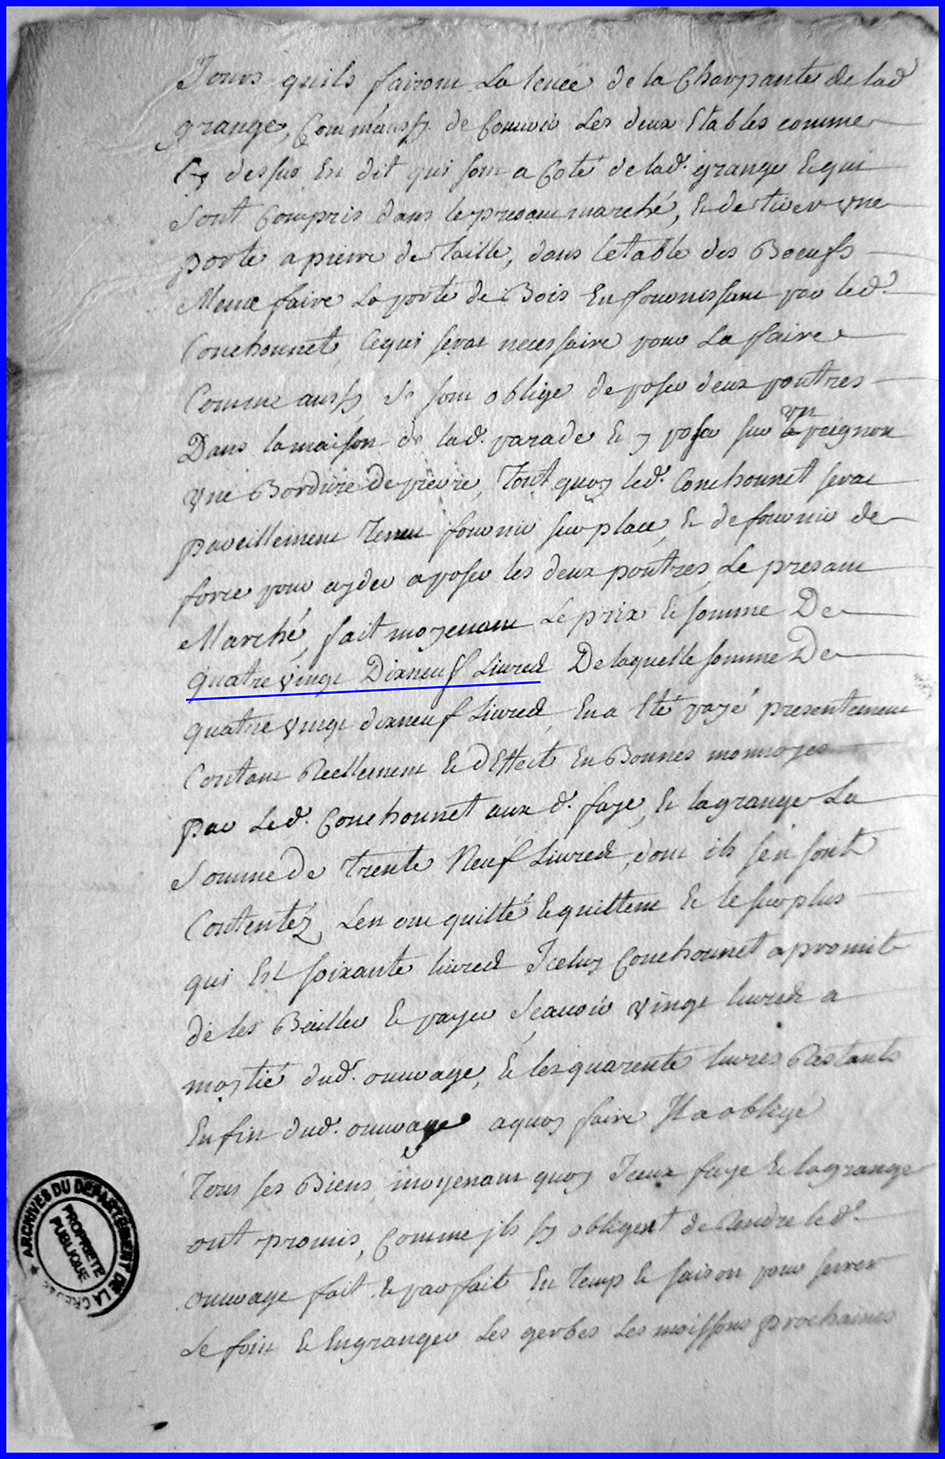 Jours quils fairont La levée de la Charpante de lad.
grange, Comme aussy de Couvrir Les deux Etables comme
Cy dessus Est dit qui sont a Coté de lad. grange & qui
Sont Compris dans le presant marché, & de tirer Une
porte a pierre de Taille, dans letable des Boeufs
Meme faire La porte de Bois En fournissant par led.
Couchonnet Cequi serat necessaire pour La ffaire
Comme aussy Se sont obligé de poser deux poutres
Dans la maison de lad. parade & y poser sur un peignon
Une Bordure de pierre, Tout quoy led. Couchonnet serat
pareillement Tenu fournir sur place, & de fournir de
force pour ayder a poser les deux poutres, Le presant
Marché, fait moyenant Le prix & Somme De
quatre vingt Dixneuf Livres De laquelle somme De
quatre vingt dixneuf Livres En a Eté payé presentement
Contant Reellement & d'Effect En Bonnes monnoyes
par Led. Couchonnet aux d. faye & lagrange La
Somme De Trente Neuf Livres, dont ils s'en sont
Contentéz, L'en ont quitté & quittent & le surplus
qui Est soixante livres Iceluy Couchonnet a promit
de les Bailler & payer Scavoir vingt livres a
moytié dud. ouvrage, & les quarente livres Restants
En fin dud. ouvrage a quoy faire Il a obligé
Tous ses Biens moyenant quoy Iceux faye & lagrange
ont promis, Comme ils sy obligent de Rendre led.
ouvrage fait & parfait En Temp & saison pour serrer
Le foin & Engranger Les gerbes Les moissons prochaines
ARCHIVES DU DÉPARTEMENT DE LA CREUSE
PROPRIÉTÉ
PUBLIQUE